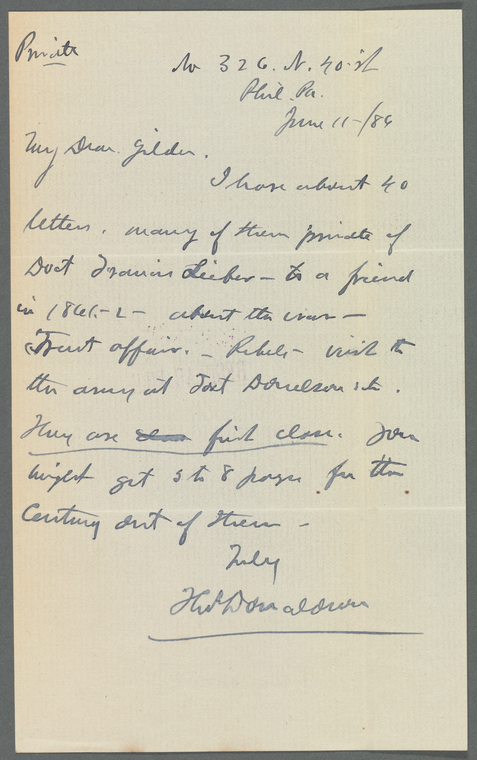 Private
No 326. N. 40 st
Phil. Pa.
June 11-/86
My Dear Gilder.
I have about 40
letters, many of them private of
Doct Francis Lieber - to a friend
in 1861-2 - about the war -
Trent affair. - Rebels - visit to
the army at Fort Donelson etc.
They are first class. You
might get 5 to 8 pages for the
Century out of them -
Truly
Thos Donaldson